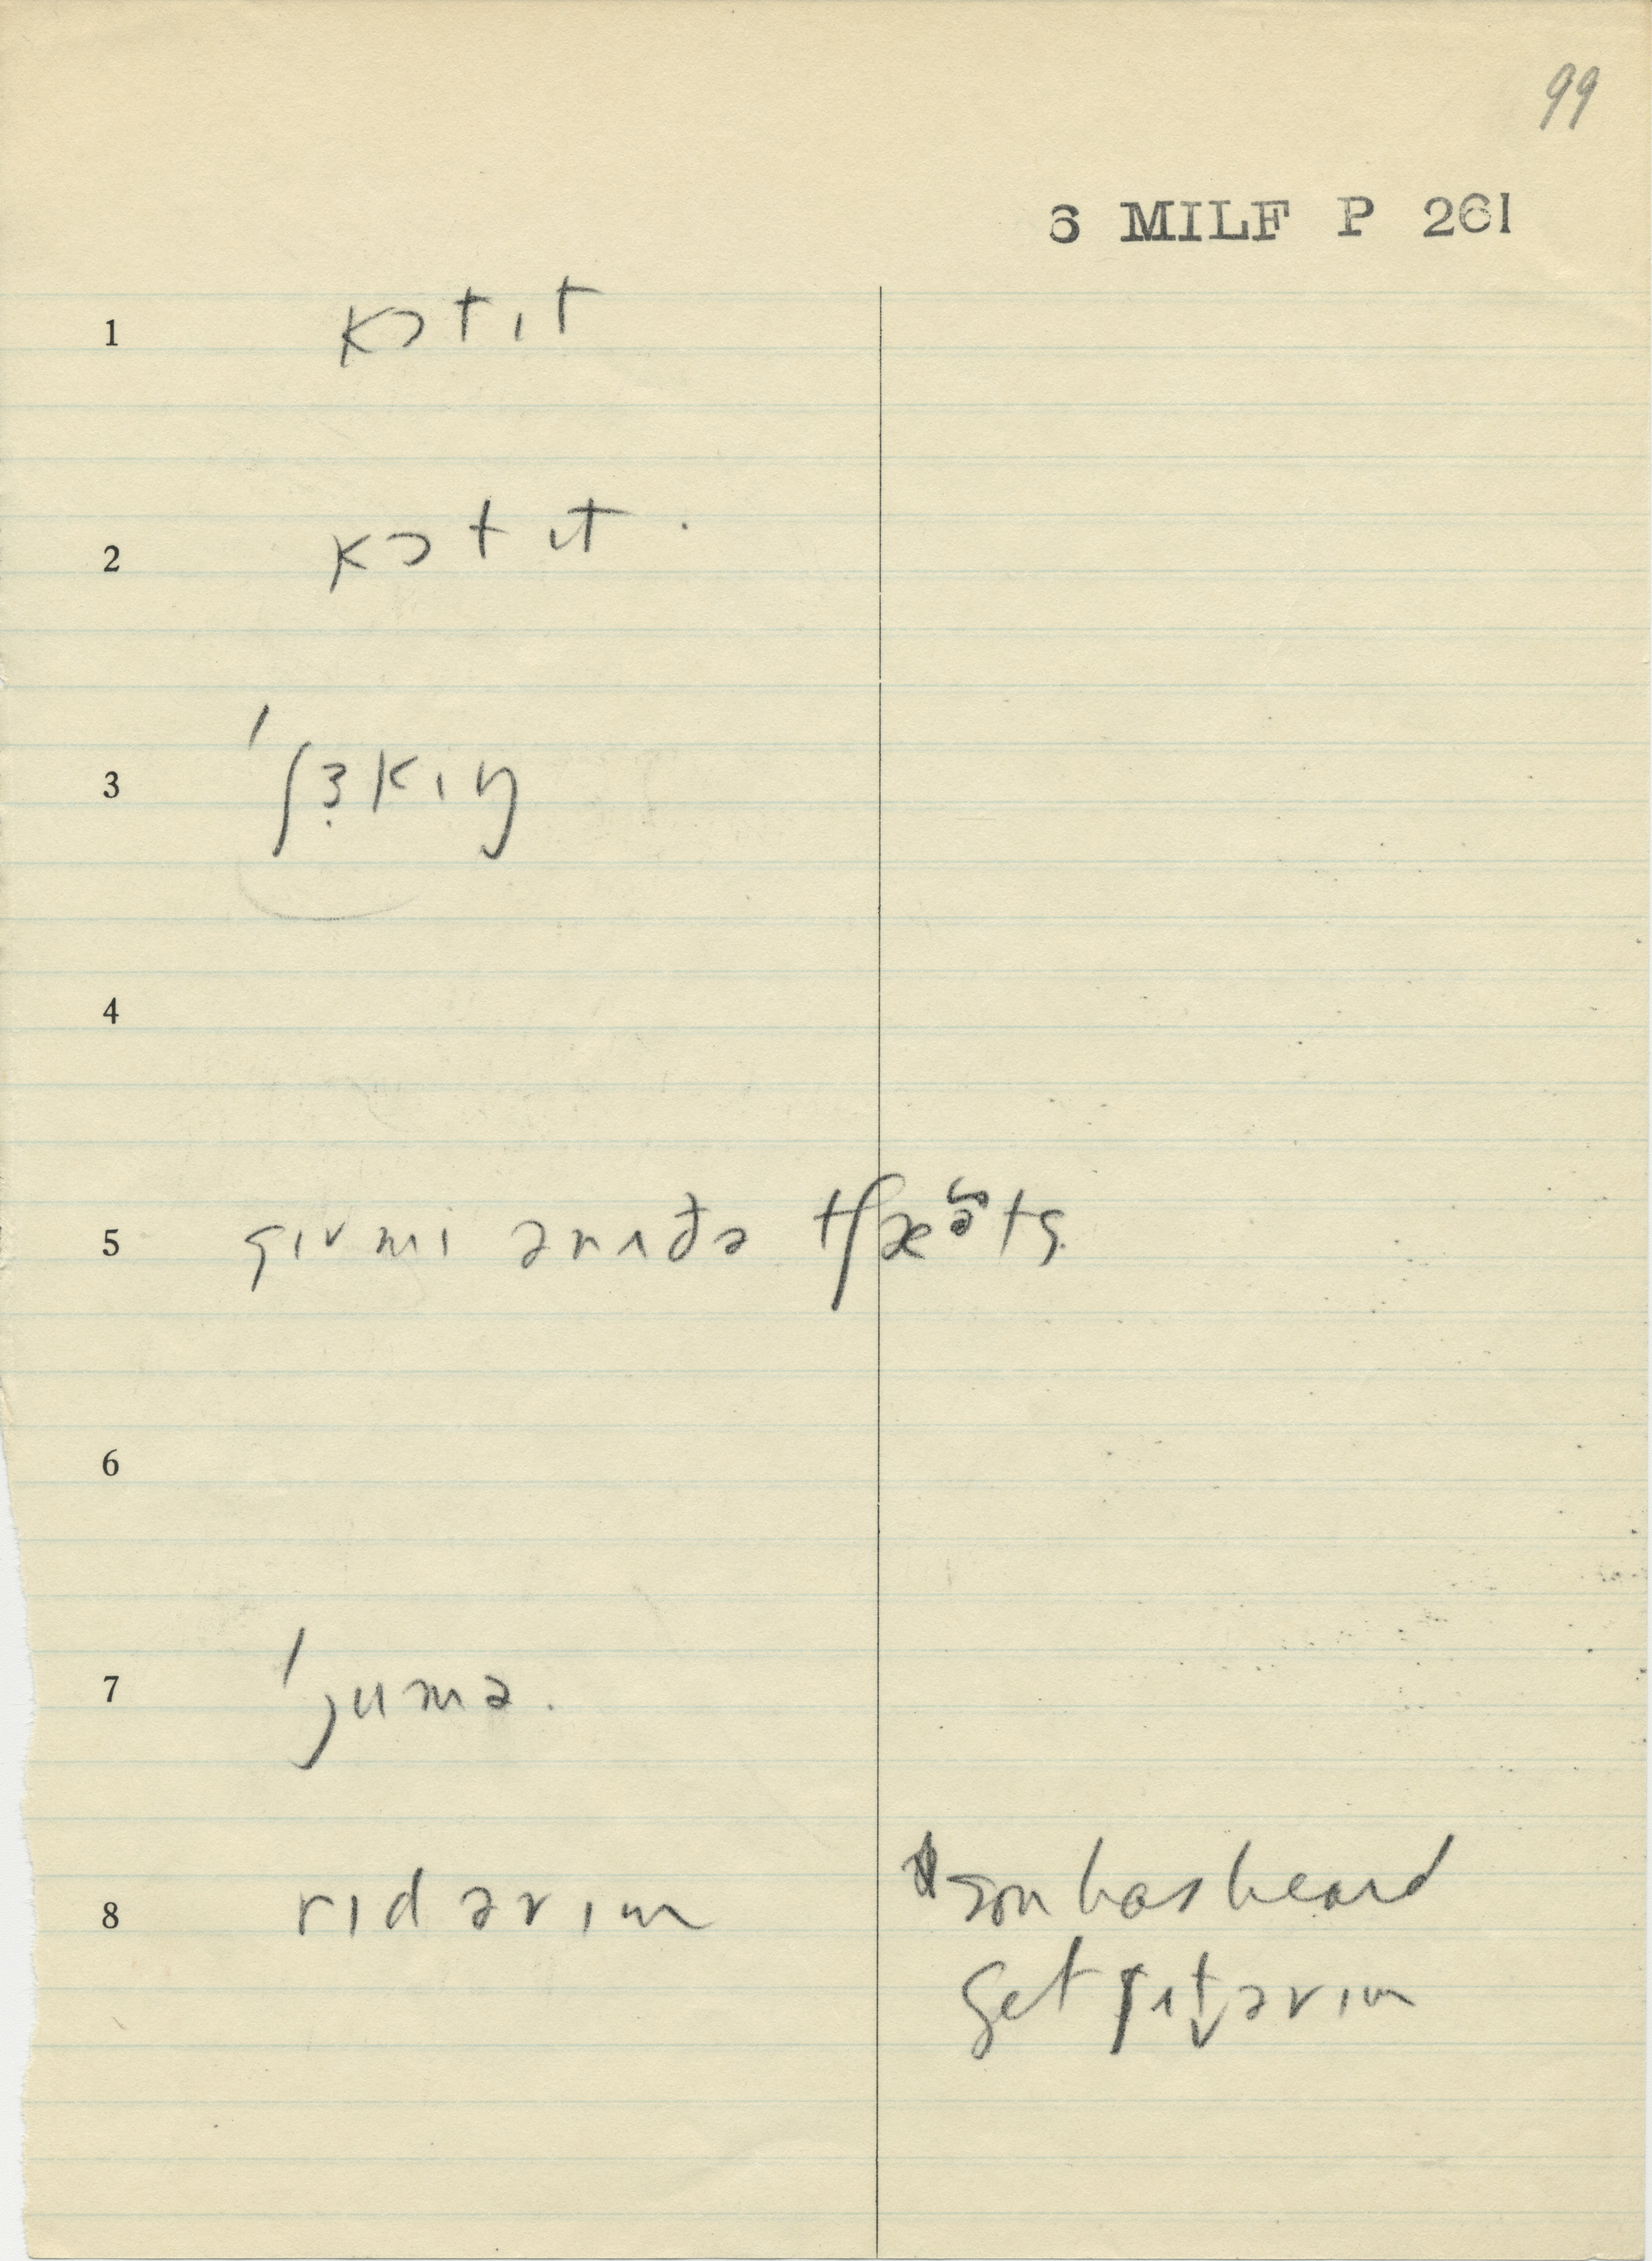 99
6 MILF P 261
1 kɔtɪt
2 kɔtɪt.
3 ˈʃɜ̣kɪŋ
4
5 gɪvmi ənʌðə tʃæə̆ts
6
7 ˈjumə.
8 rɪdəvɪm son has heard
get ʃʌt̬əvɪm